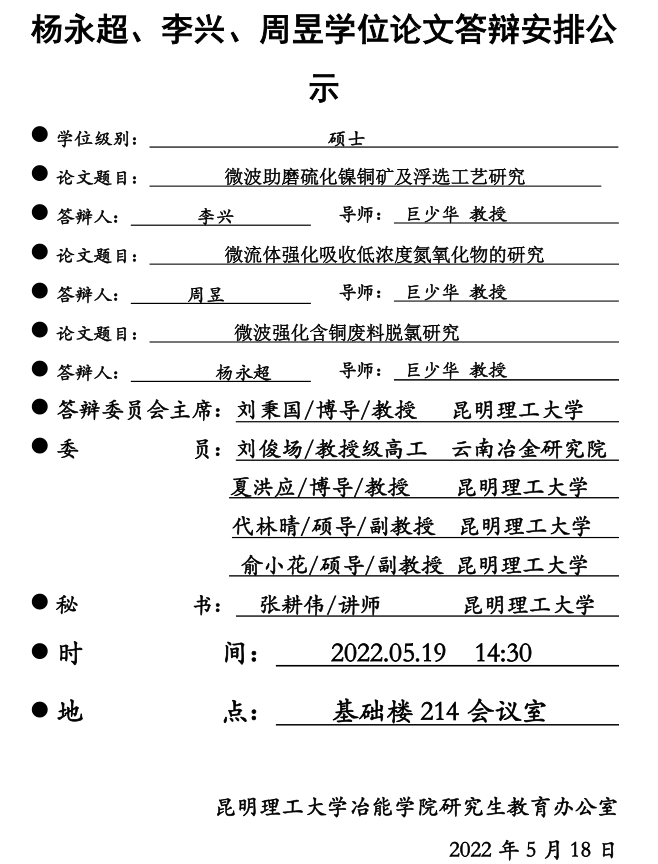 杨永超、李兴、周昱学位论文答辩安排公
示
● 学位级别： 硕士
● 论文题目： 微波助磨硫化镍铜矿及浮选工艺研究
● 答辩人： 李兴 导师： 巨少华 教授
● 论文题目： 微流体强化吸收低浓度氮氧化物的研究
● 答辩人： 周昱 导师： 巨少华 教授
● 论文题目： 微波强化含铜废料脱氯研究
● 答辩人： 杨永超 导师： 巨少华 教授
● 答辩委员会主席：刘秉国/博导/教授 昆明理工大学
● 委 员：刘俊场/教授级高工 云南冶金研究院
夏洪应/博导/教授 昆明理工大学
代林晴/硕导/副教授 昆明理工大学
俞小花/硕导/副教授 昆明理工大学
● 秘 书： 张耕伟/讲师 昆明理工大学
● 时 间： 2022.05.19 14:30
● 地 点： 基础楼 214 会议室
昆明理工大学冶能学院研究生教育办公室
2022 年 5 月 18 日